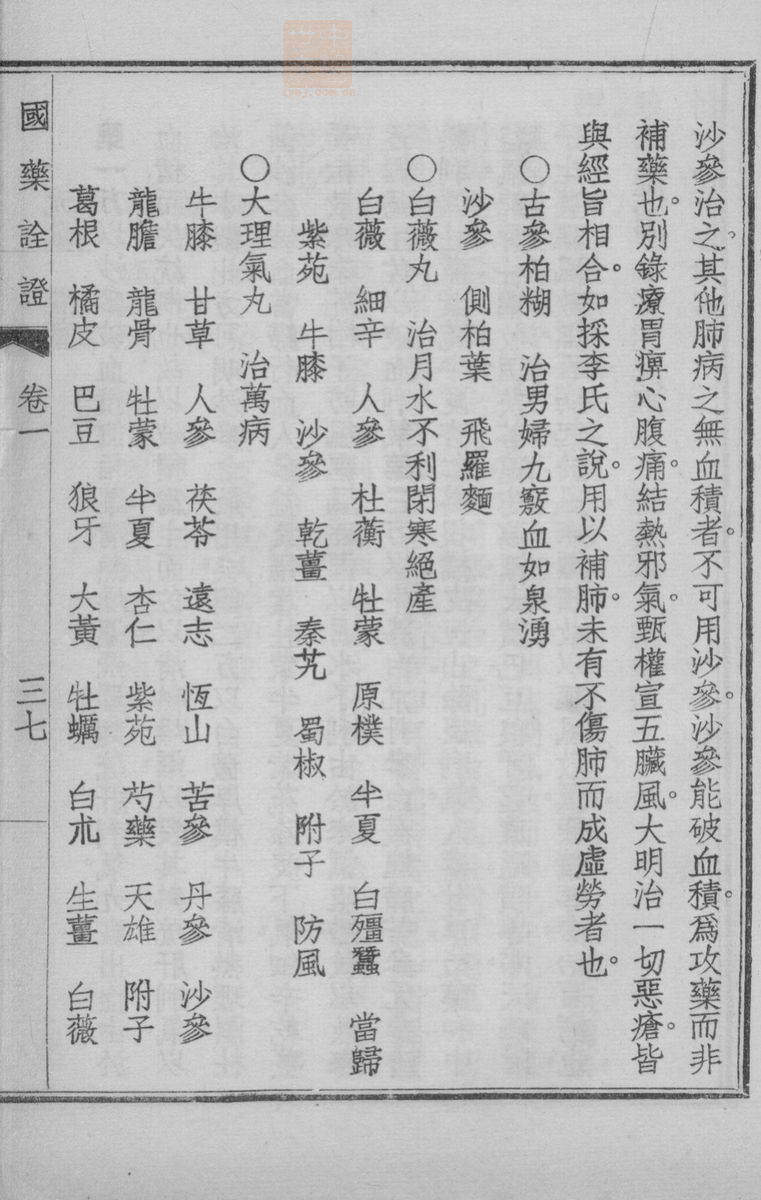 沙參治之。其他肺病之無血積者。不可用沙參。沙參能破血積。爲攻藥而非
補藥也。別錄療胃痹心腹痛。結熱邪氣。甄權宣五臟風。大明治一切惡瘡。皆
與經旨相合。如採李氏之說。用以補肺。未有不傷肺而成虛勞者也。
〇古參柏糊　治男婦九竅血如泉湧
沙參　側柏葉　飛羅麵
〇白薇丸　治月水不利閉寒絕產
白薇　細辛　人參　杜蘅　牡蒙　原樸　半夏　白殭蠶　當歸
紫苑　牛膝　沙參　乾薑　秦艽　蜀椒　附子　防風
〇大理氣丸　治萬病
牛膝　甘草　人參　茯苓　遠志　恆山　苦參　丹參　沙參
龍膽　龍骨　牡蒙　半夏　杏仁　紫苑　芍藥　天雄　附子
葛根　橘皮　巴豆　狼牙　大黃　牡蠣　白朮　生薑　白薇
國藥詮證　卷一　三七